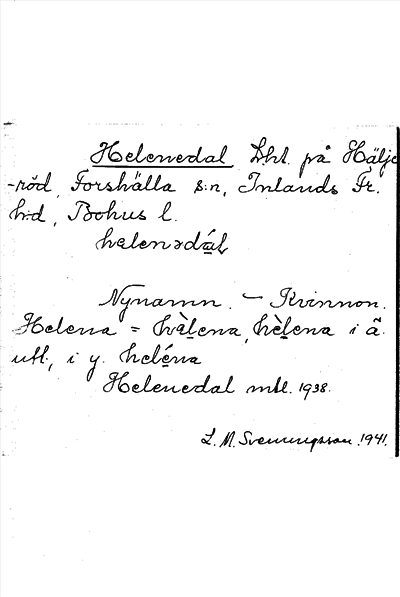 Helenedal Lht. på Hälje
-röd, Forshälla s:n, Inlands Fr.
h:d, Bohus l.
helenədál
Nynamn. – Kvinnon.
Helena = hèlena, hèlena i ä.
utt., i y. heléna
Helenedal mtl. 1938.
L. M. Svenungsson 1941.